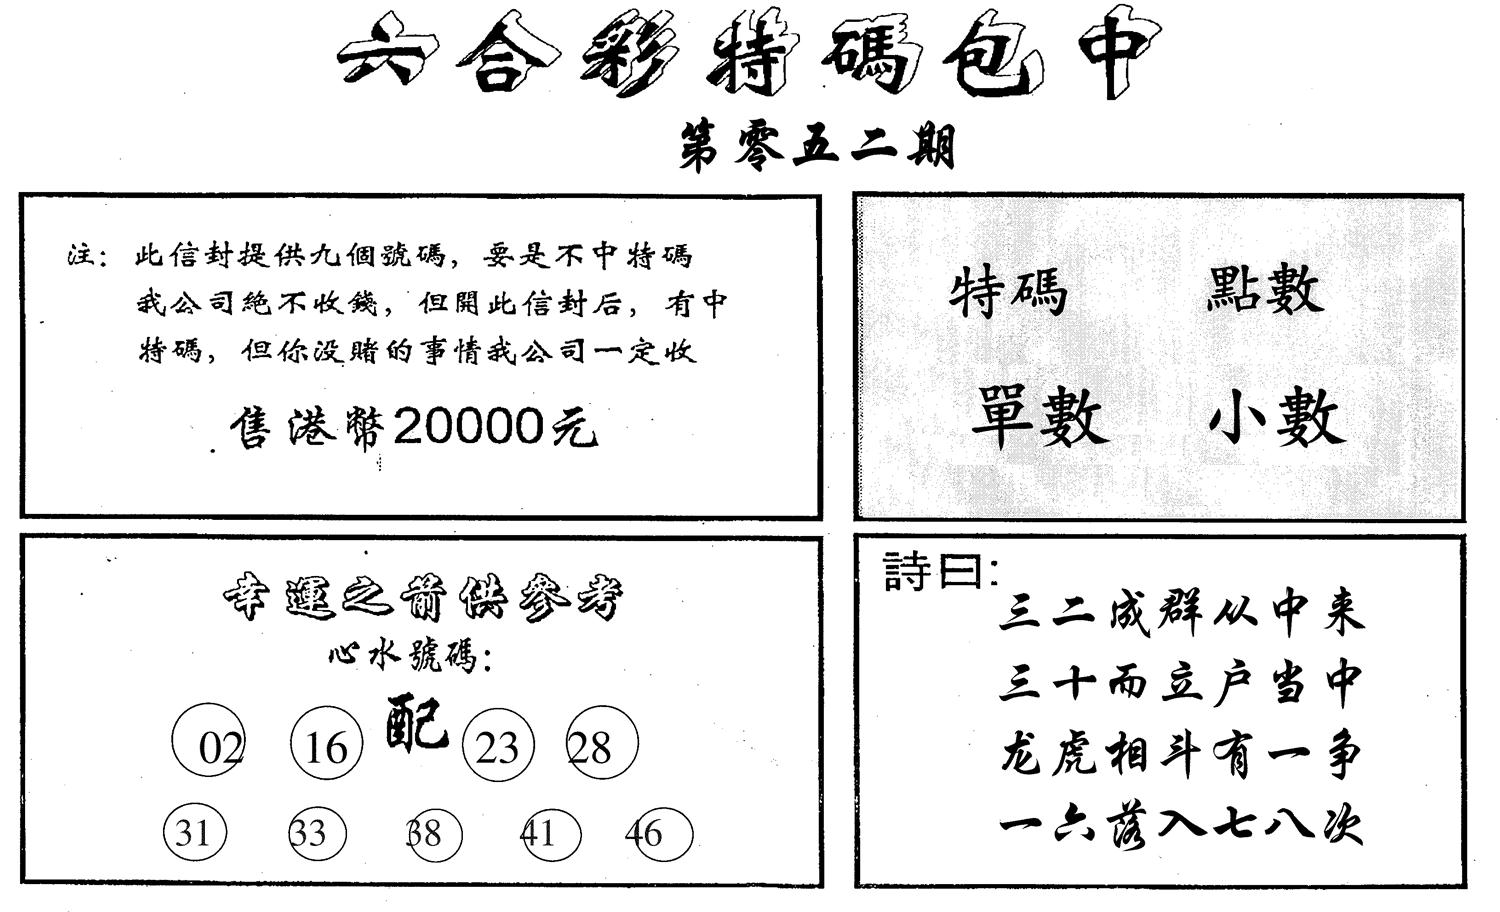 六合彩特碼包中
第零五二期
注：此信封提供九個號碼，要是不中特碼
我公司絕不收錢，但開此信封后，有中
特碼，但你没賭的事情我公司一定收
售港幣20000元
特碼 點數
單數 小數
幸運之箭供參考
心水號碼：
02 16 配 23 28
31 33 38 41 46
詩曰：
三二成群从中来
三十而立户当中
龙虎相斗有一争
一六落入七八次